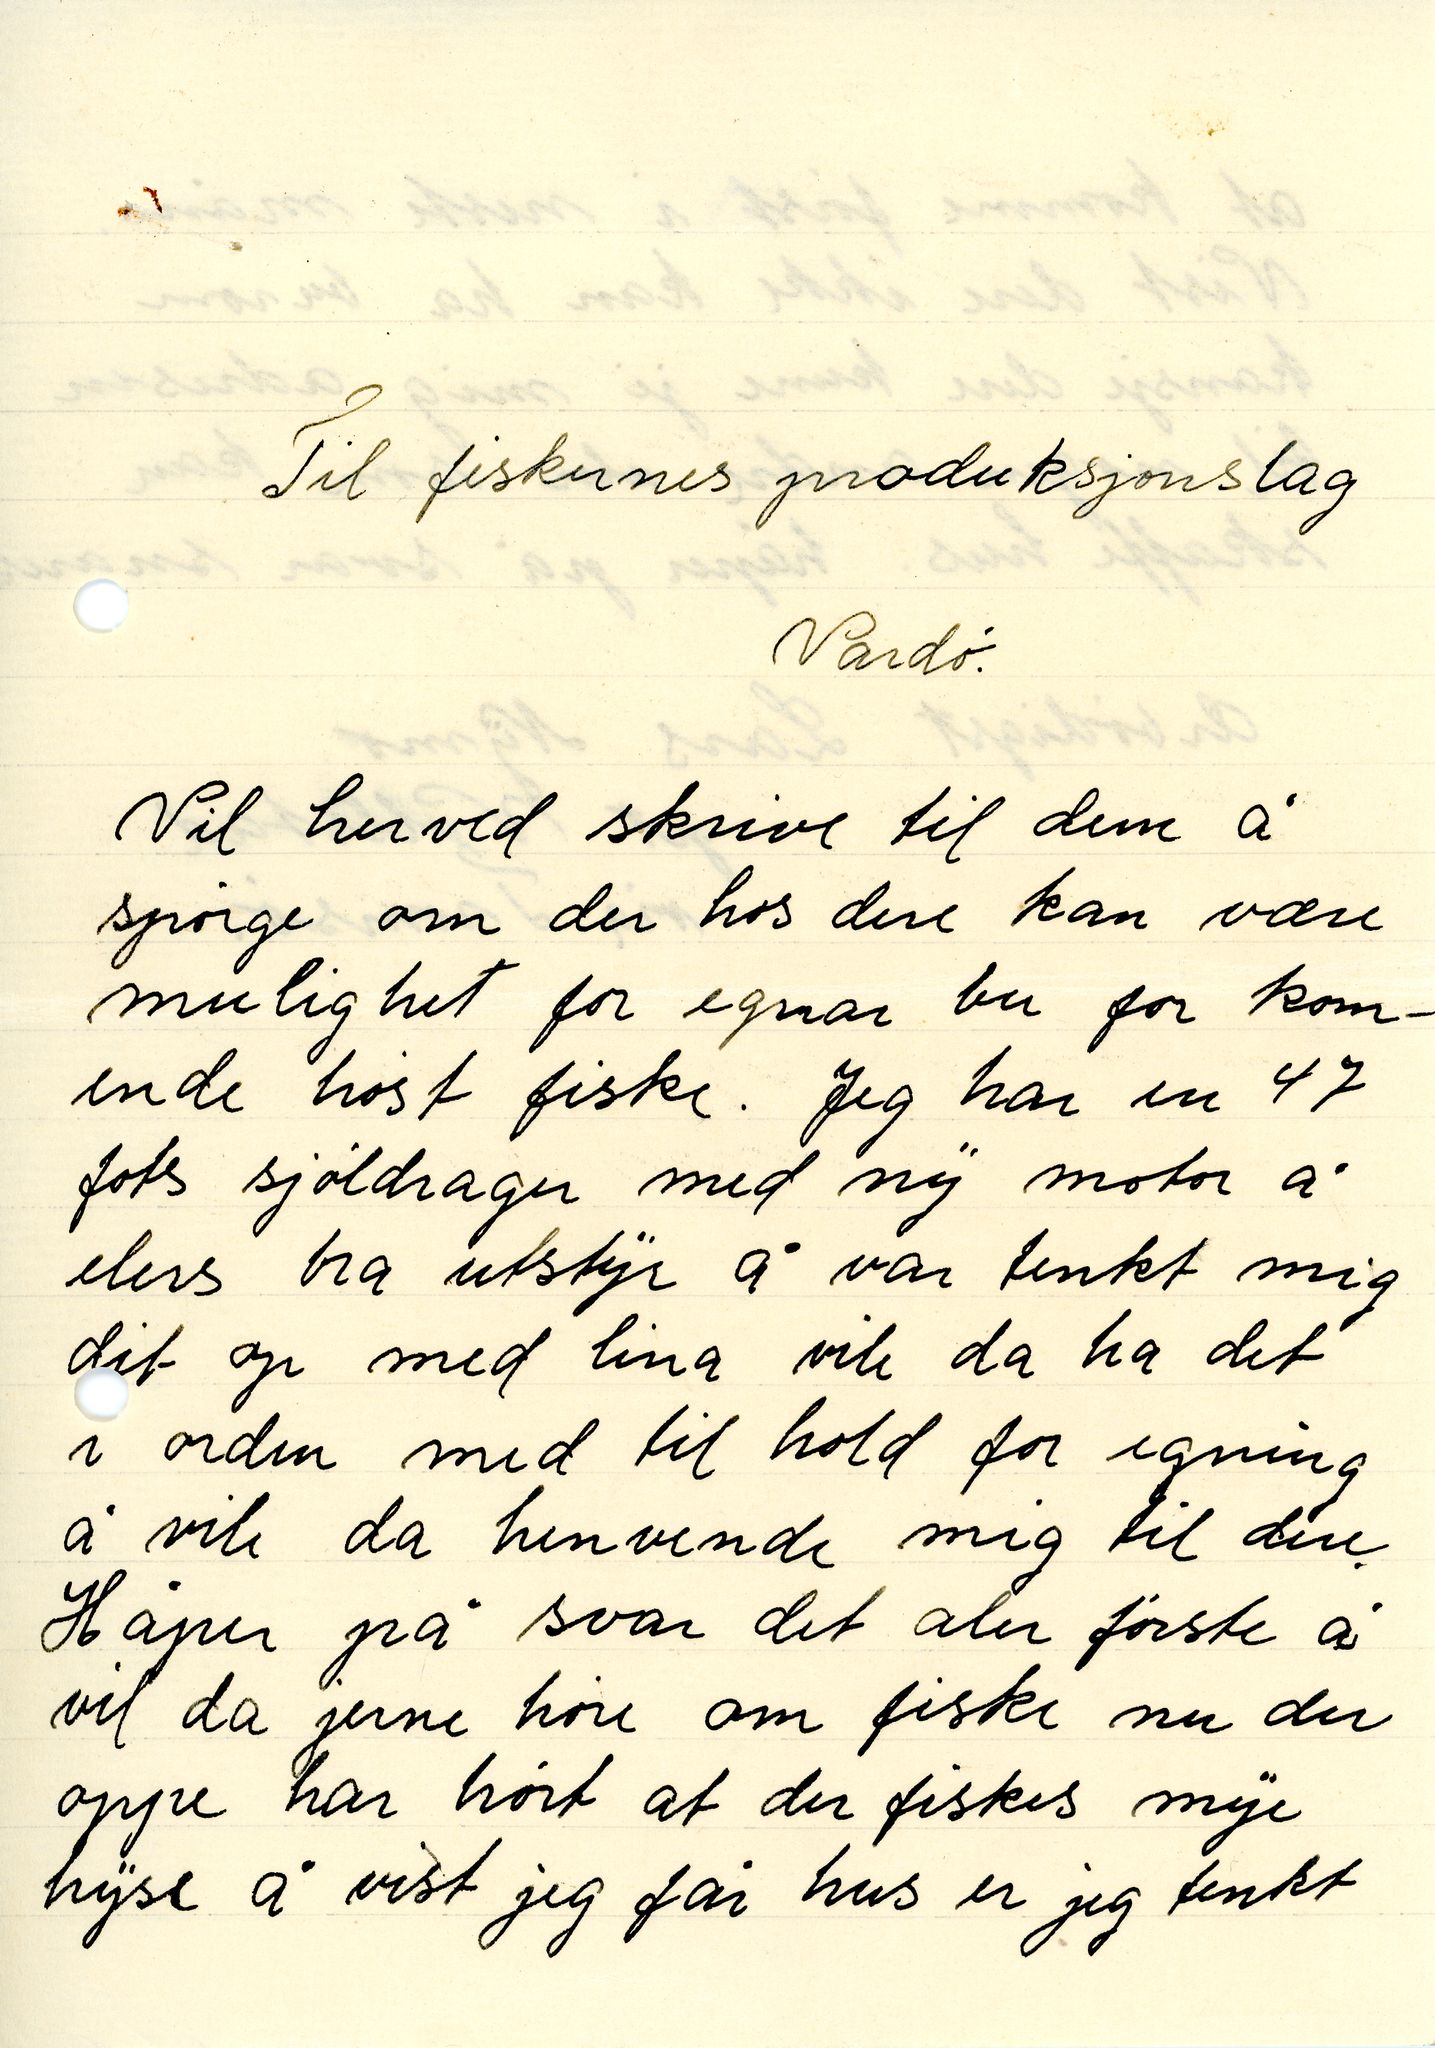 Til fiskernes produksjonslag
Vardö.
Vil herved skrive til dem å
spörge om der hos dere kan være
mulighet for egnar bu for kom-
ende höst fiske. Jeg har en 47
fots sjöldrager med nÿ motor å
elers bra utstÿr å var tenkt mig
dit op med lina vile da ha det
i orden med til hold for egning
å vile da henvende mig til dere.
Håper på svar det aler förste å
vil da jerne höre om fiske nu der
oppe har hört at der fiskes mÿe
hÿse å vist jeg får hus er jeg tenkt